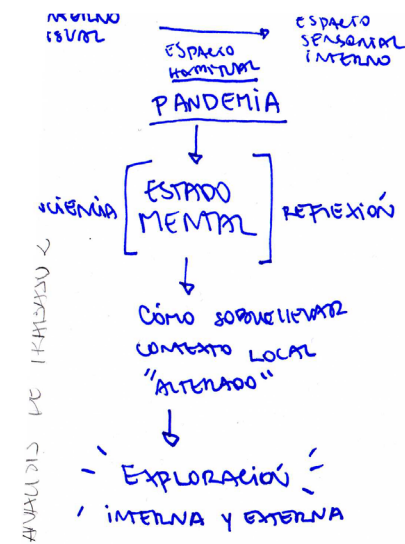 ESPACIO
SENSORIAL
INTERNO
ESPACIO
HABITUAL
PANDEMIA
ESTADO
MENTAL
REFLEXIÓN
CÓMO SOBRELLEVAR
CONTEXTO LOCAL
"ALTERADO"
EXPLORACIÓN
INTERNA Y EXTERNA
ANALISIS DE TRABAJO